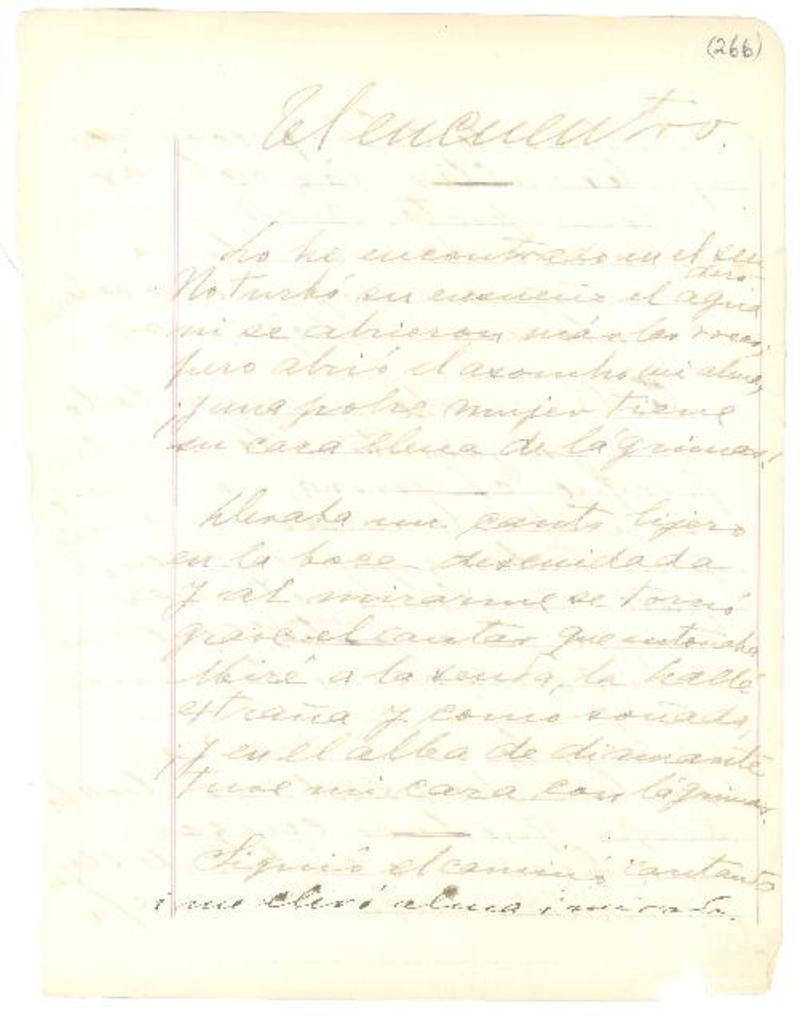 (266)
El encuentro.
Lo he encontrado en el sen
dero.
No turbó su ensueño el agua
ni se abrieron más las rosas;
pero abrió el asombro mi alma,
¡y una pobre mujer tiene
su cara llena de lágrimas!
Llevaba un canto lijero
en la boca descuidada
y al mirarme se tornó
grave el cantar que entonaba
Miré a la senda, la hallé
extraña y como soñada,
¡y en el alba de diamante
tuve mi cara con lágrimas!
Siguió el camino cantando
i me llevó alma i mirada.